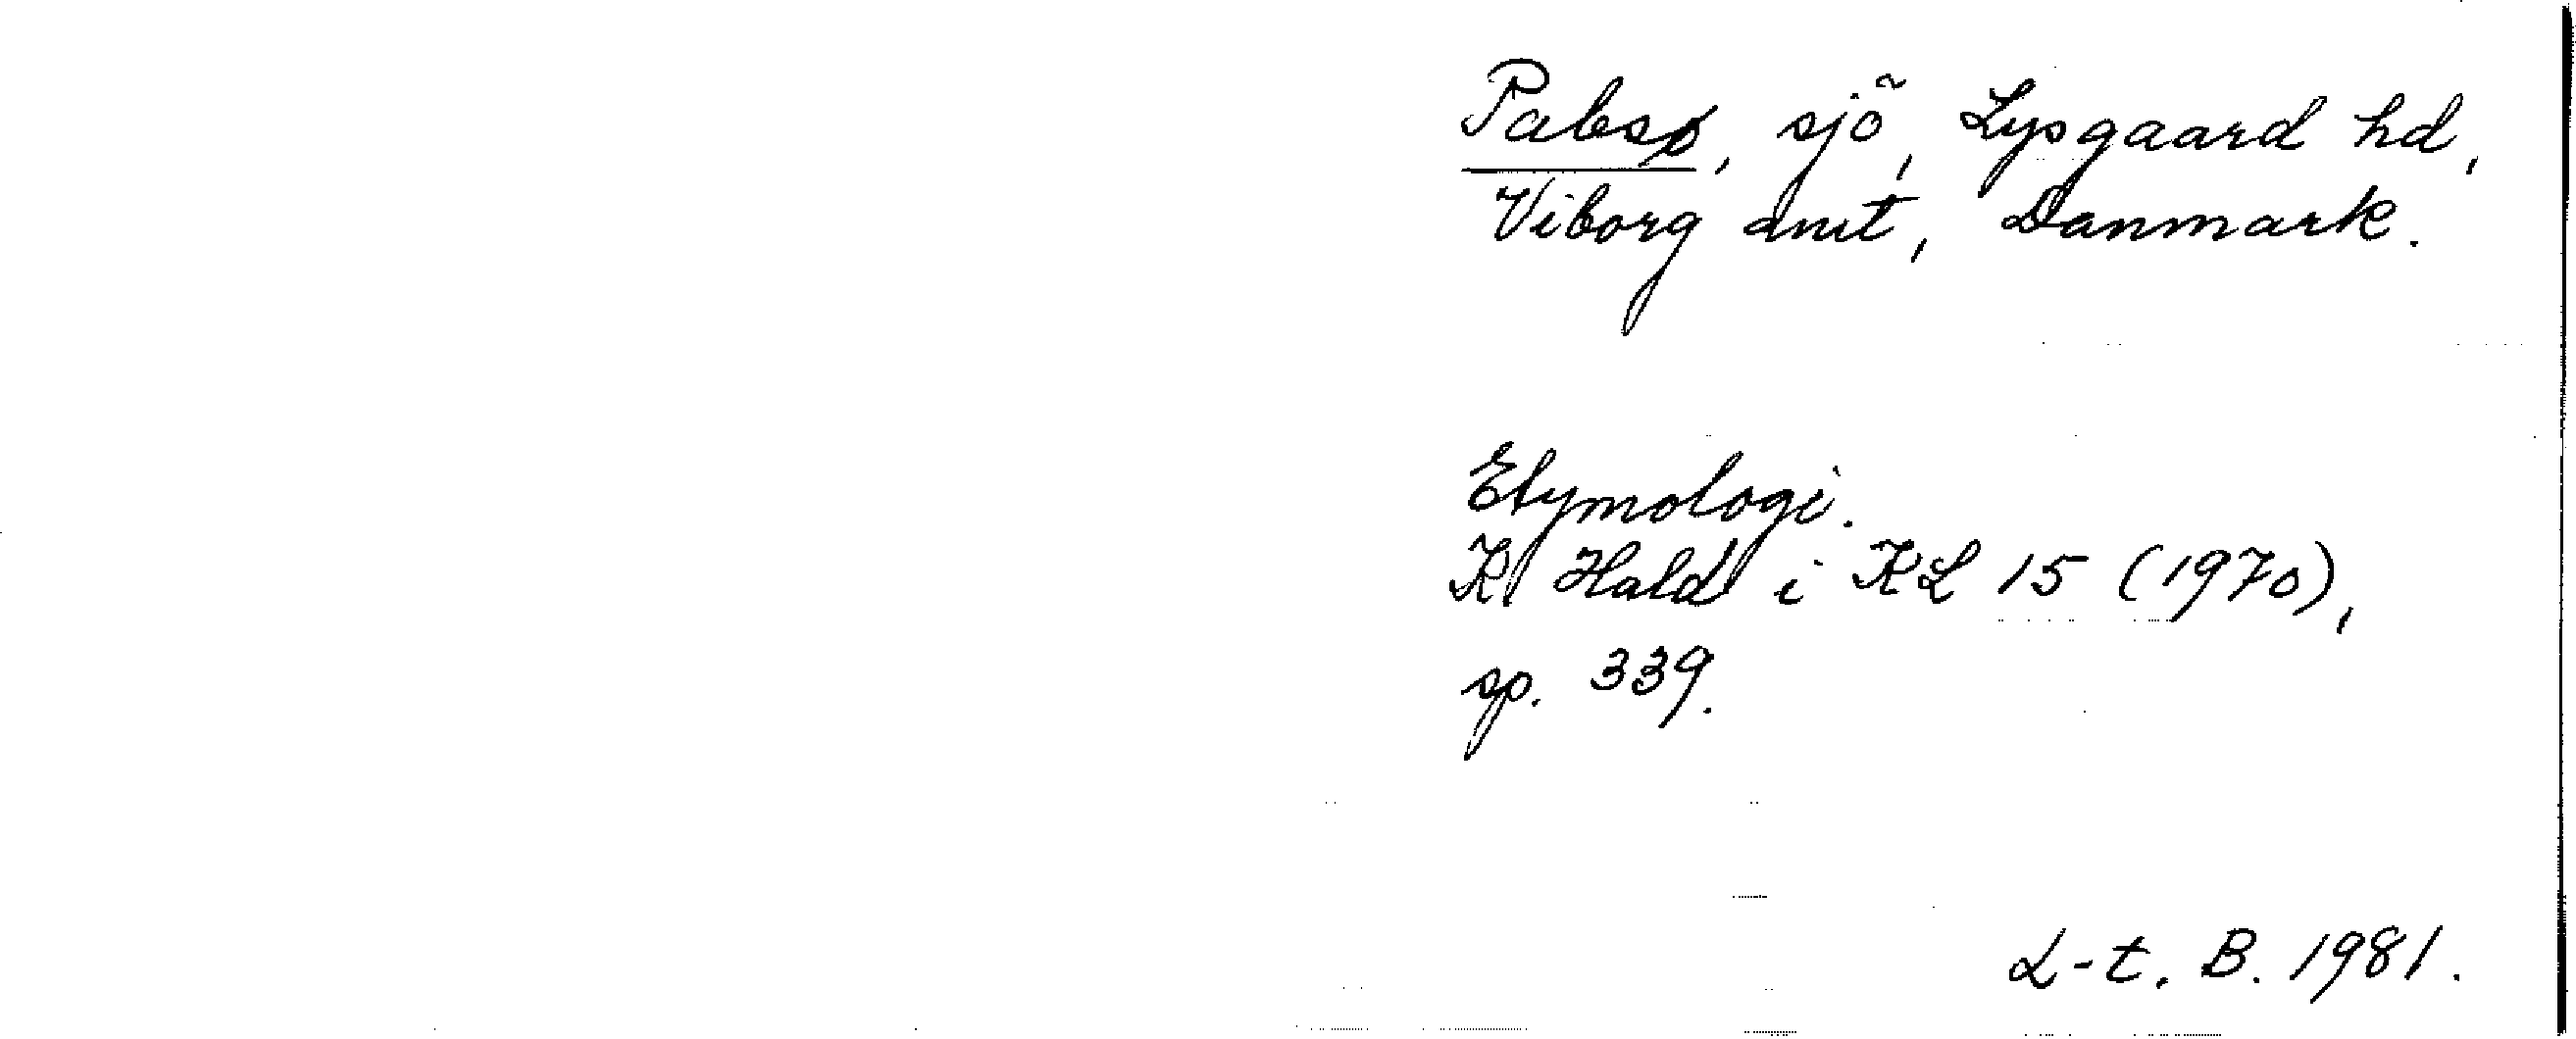 Pabsø, sjö, Lysgaard hd,
Viborg amt, Danmark.
Etymologi.
K Hald i KL 15 (1970),
sp. 339.
L-t. B. 1981.